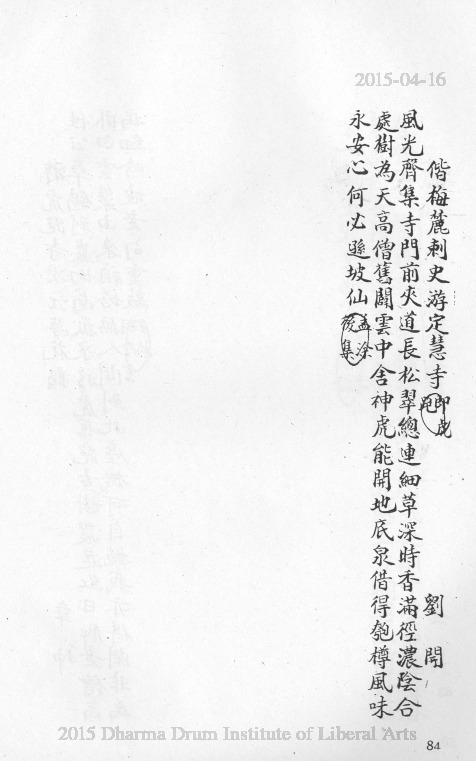 2015-04-16
偕梅麓刺史游定慧寺即虎跑 劉開
風光齊集寺門前夾道長松翠總連細草深時香滿徑濃陰合
處樹為天高僧舊闢雲中舍神虎能開地底泉借得匏樽風味
永安心何必遜坡仙孟涂後集
84
2015 Dharma Drum Institute of Liberal Arts